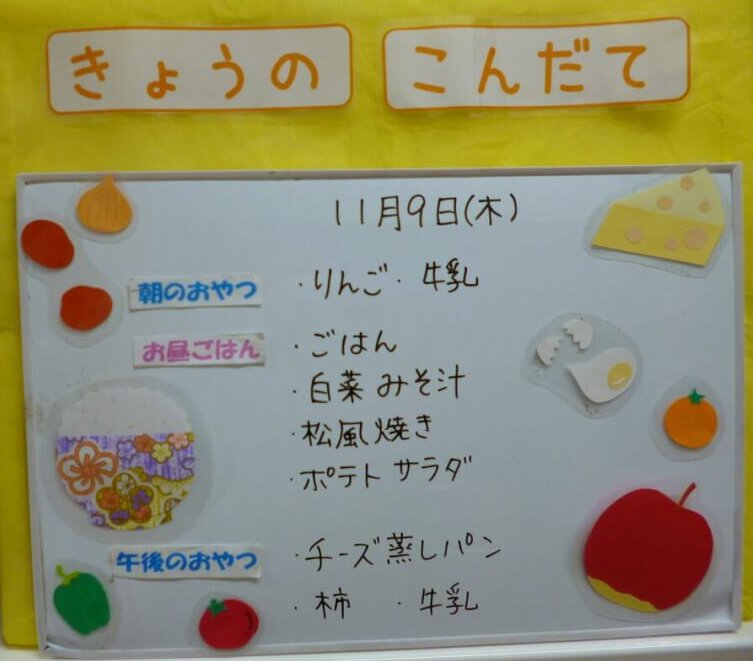 きょうの こんだて
11月9日(木)
朝のおやつ ・りんご ・牛乳
お昼ごはん ・ごはん
・白菜 みそ汁
・松風焼き
・ポテトサラダ
午後のおやつ ・チーズ蒸しパン
・柿 ・牛乳